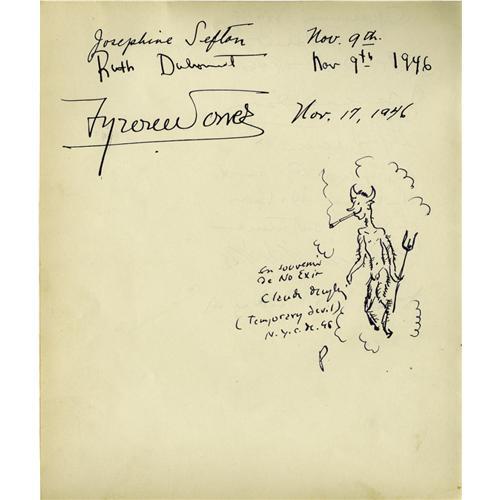 Josephine Sefton Nov. 9th.
Ruth Nov 9th 1946
Nov. 17, 1946
en souvenir
de No Exit
Claude
(Temporary devil)
N.Y.C. 46